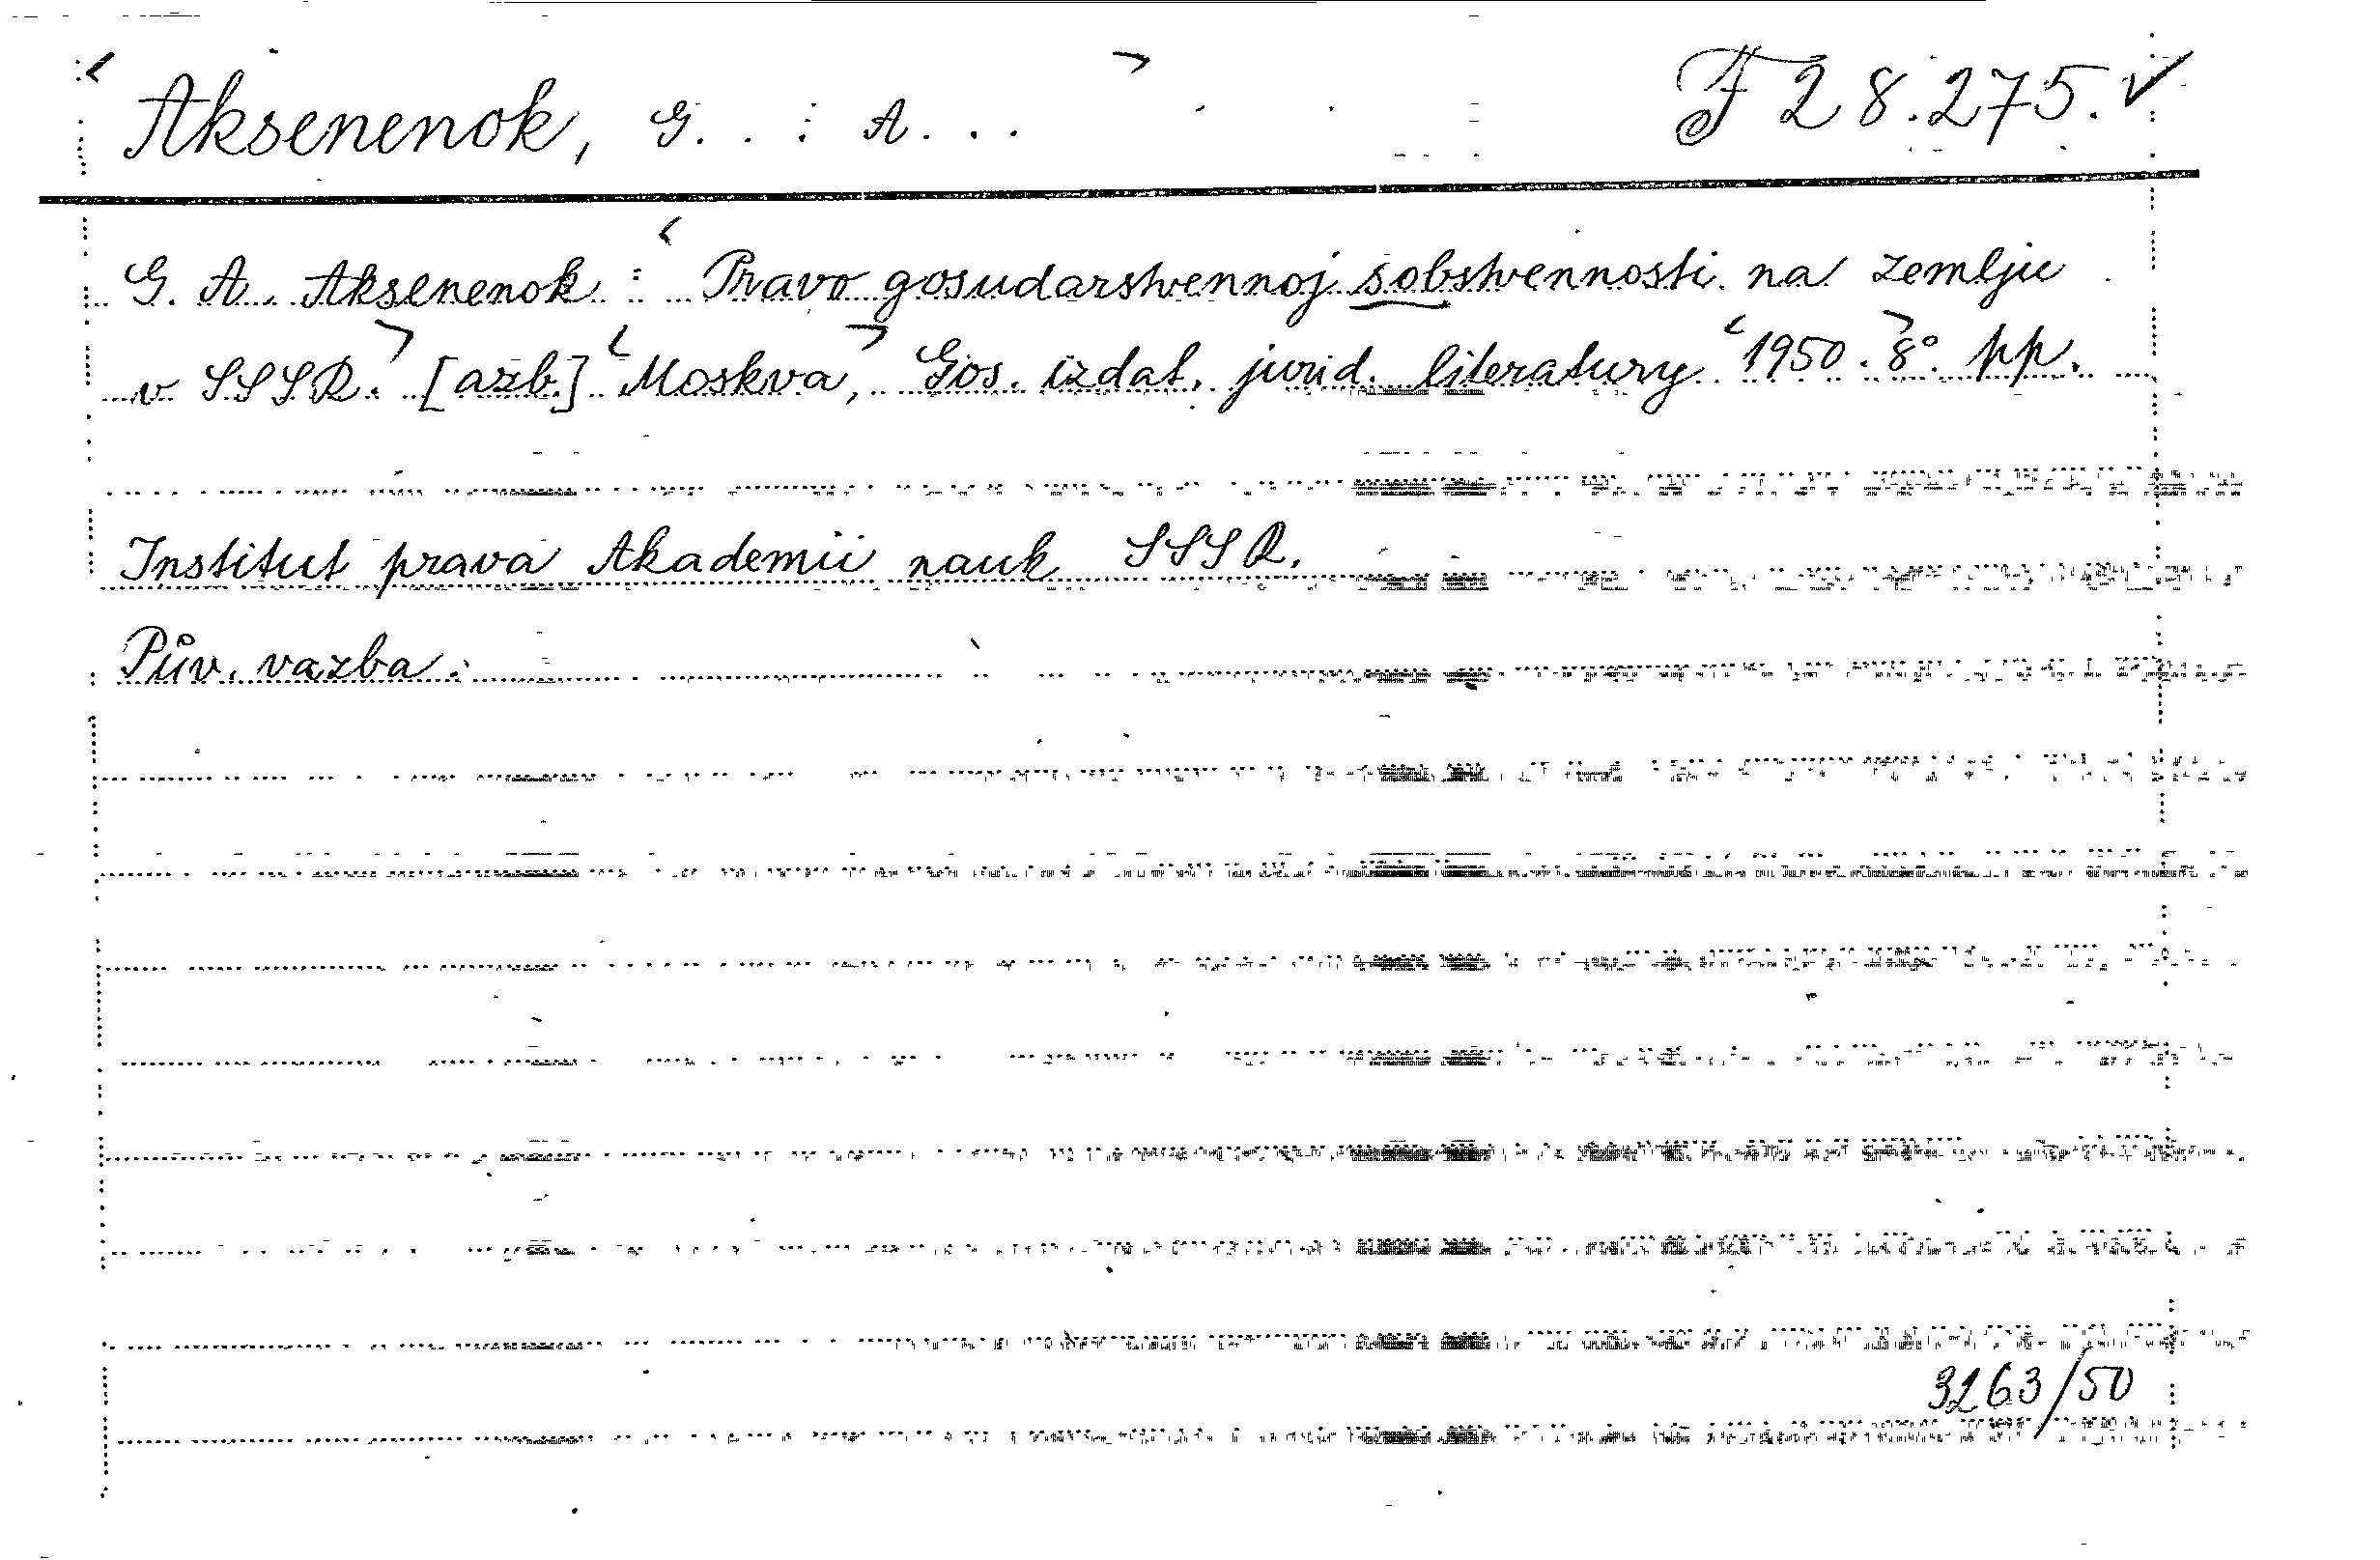 Aksenenok, G. . : A. . . F 28.275.
G. A. Aksenenok : Pravo gosudarstvennoj sobstvennosti na zemlju
v SSSR. [azb.] Moskva, Gos. izdat. jurid. literatury 1950. 8°. pp.
Institut prava Akademii nauk SSSR.
Pův. vazba.
3263/50